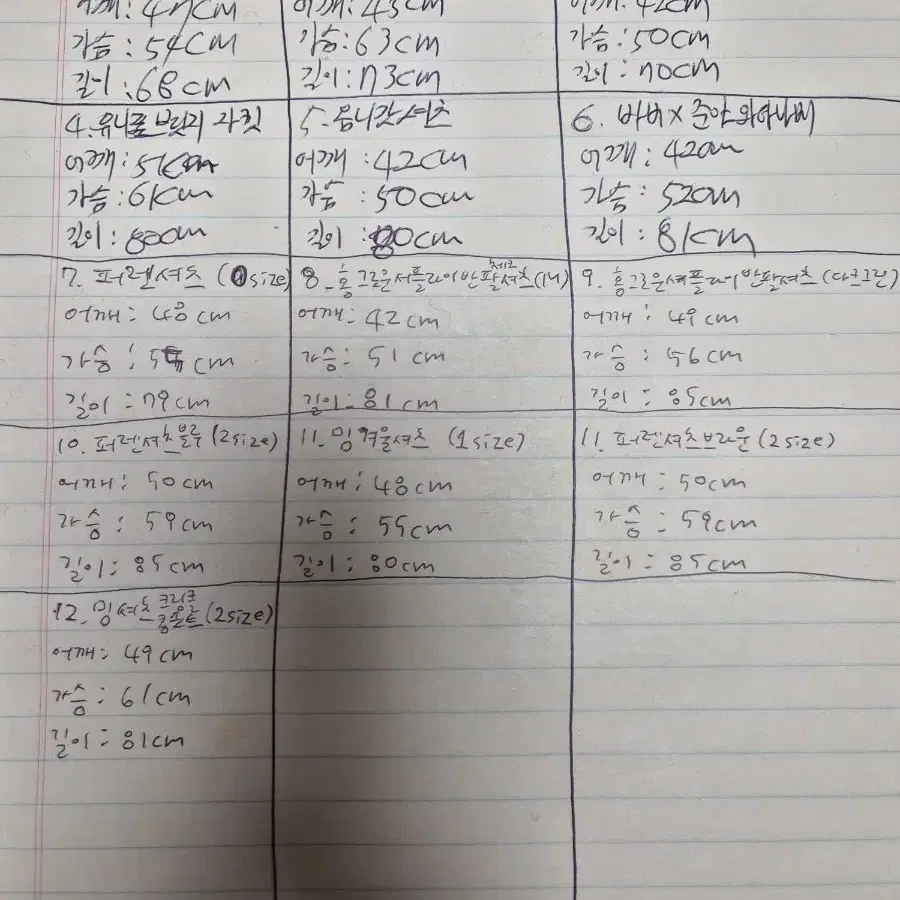 어깨: 47cm
가슴: 54cm
길이: 68cm
어깨: 45cm
가슴: 63cm
길이: 73cm
어깨: 42cm
가슴: 50cm
길이: 70cm
4. 유니폼브릿지 자켓
어깨: 51cm
가슴: 61cm
길이: 80cm
5. 옴니갓셔츠
어깨: 42cm
가슴: 50cm
길이: 80cm
6. 바버 x 준야 와타나베
어깨: 42cm
가슴: 52cm
길이: 81cm
7. 퍼렌셔츠 (1size)
어깨: 48cm
가슴: cm
길이: 79cm
8. 홍그로운서플라이반팔셔츠
체크
어깨: 42cm
가슴: 51cm
길이: 81cm
9. 홍그로운서플라이반팔셔츠 (다크그린)
어깨: 49cm
가슴: 56cm
길이: 85cm
10. 퍼렌셔츠블루 (2size)
어깨: 50cm
가슴: 59cm
길이: 85cm
11. 밍겨울셔츠 (1size)
어깨: 48cm
가슴: 55cm
길이: 80cm
11. 퍼렌셔츠브라운 (2size)
어깨: 50cm
가슴: 59cm
길이: 85cm
12. 밍셔츠 (2size)
어깨: 49cm
가슴: 61cm
길이: 81cm